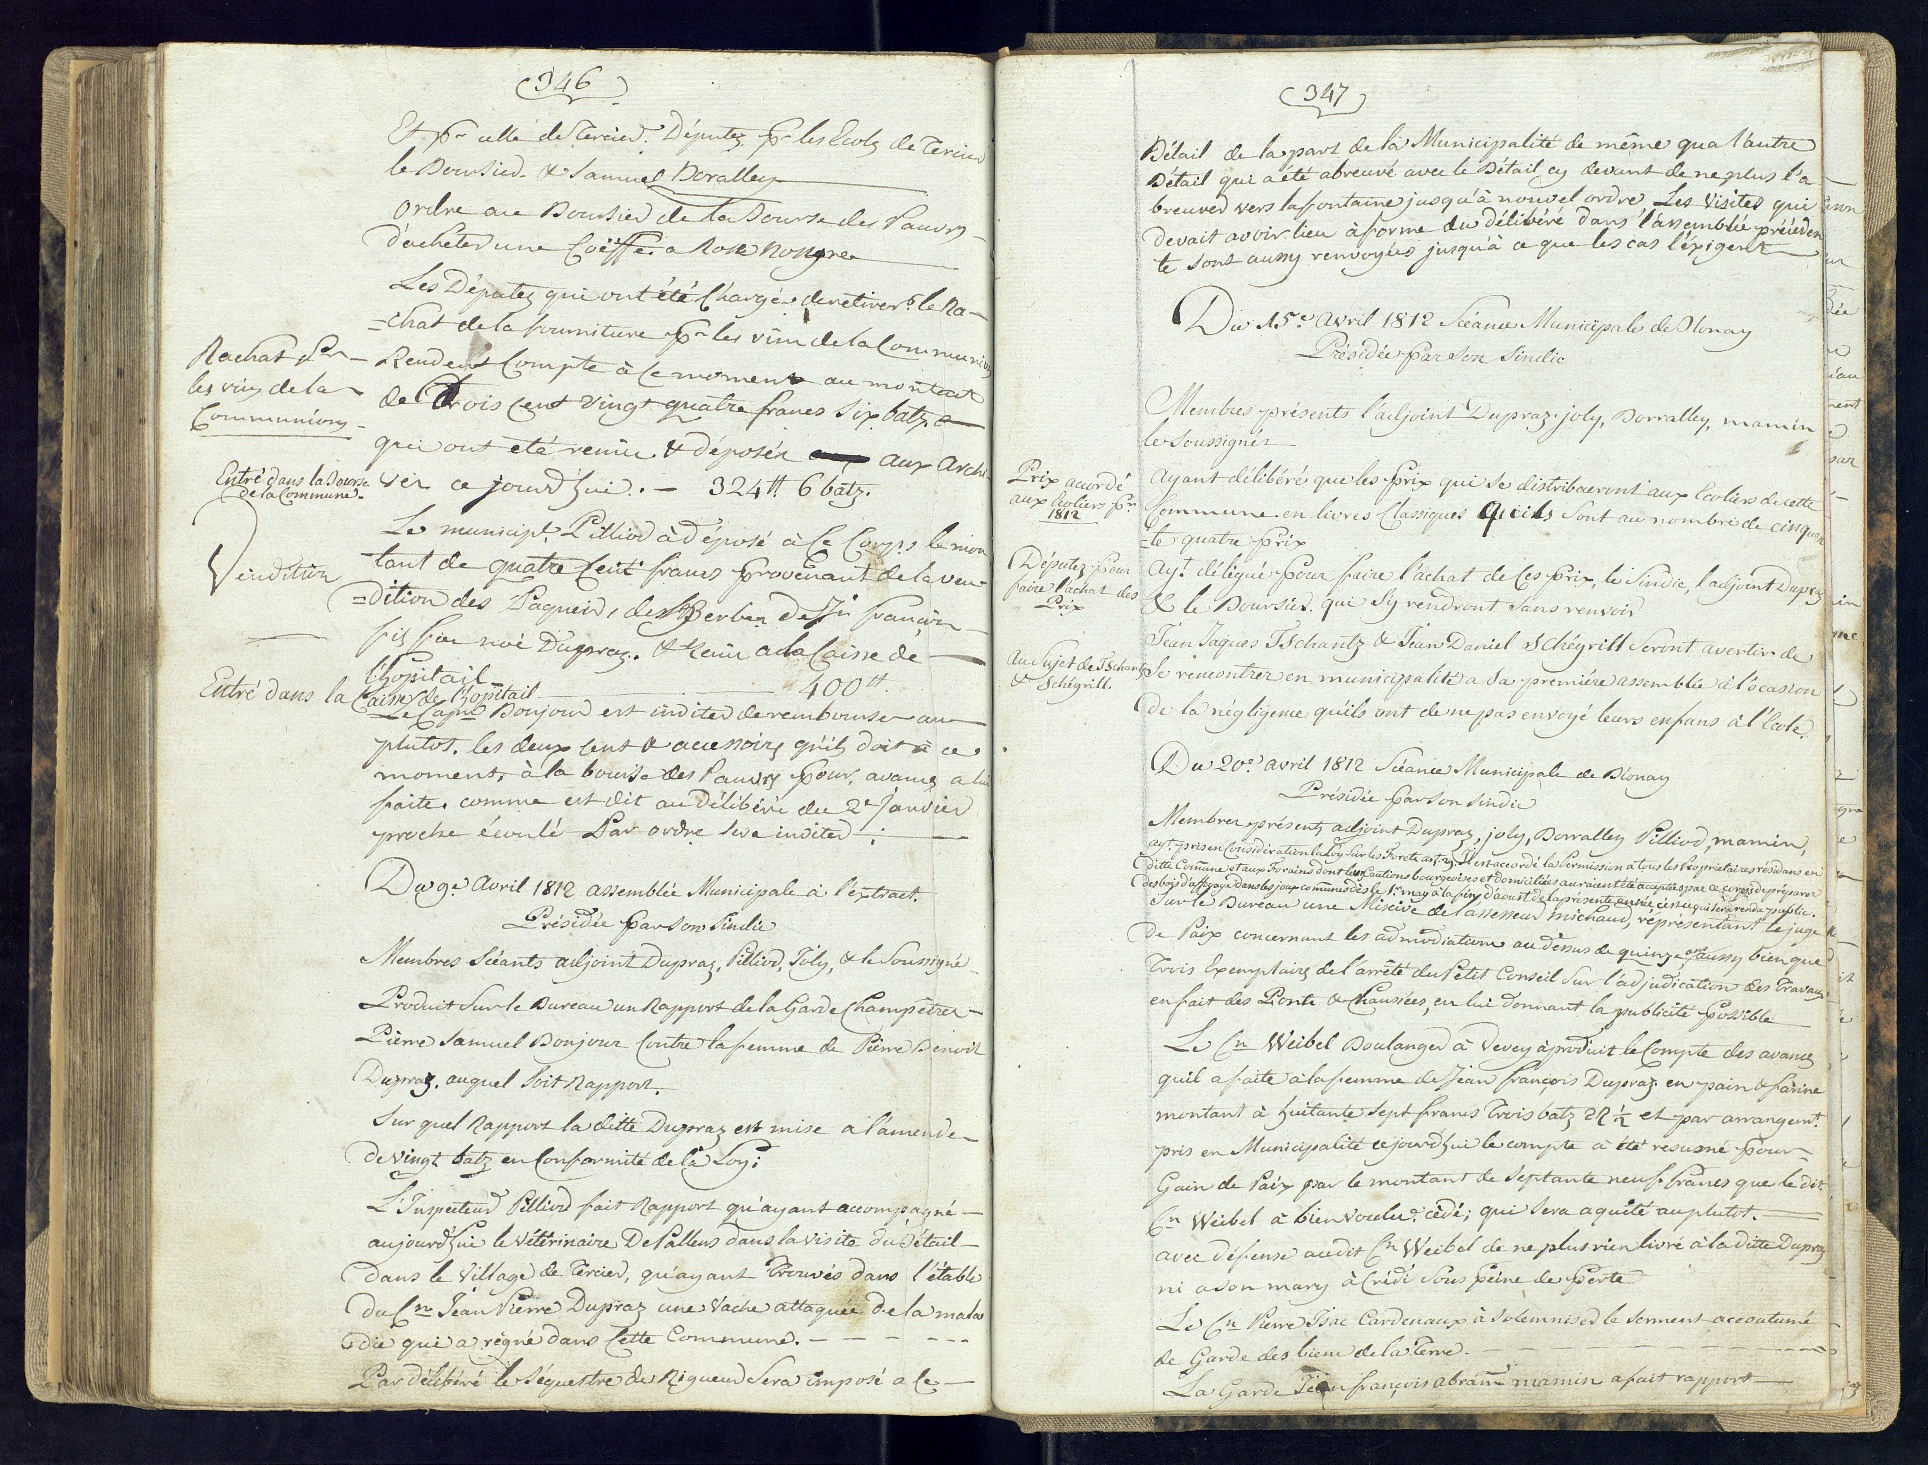 (346)
Et pr celle de Tercier. Députez pr les Ecolz de Tercier
le Boursier. & Samuel Boralley
Ordre au Boursier de la Bourse des Pauvrs
d'acheter une Coëffe. a Rose
Les Députez qui ont été Chargé. de retirer le Ra-
=chat de la fourniture pr les vins de la Communion
Rachat pr
les vins de la
Communions
Rendent Compte à ce moment au montant
de Trois Cent vingt quatre francs Six batz
qui ont été remis & déposés aux Archi
Entré dans la Bourse
de la Commune.
ves ce jourd'hui. – 324 ₶ 6 batz.
Le municipt. Pilliod à déposé à Ce Corps le mon
Vendition
tant de quatre Cent francs provenant de la ven-
=dition des Paquier, des Herbes de Jn françois
fils feu noé Dupraz. & Remis a la Caisse de
l'hopitail
400 ₶.
Entré dans la Caisse de l'hopitail
Le Capne Bonjour est inviter de rembourser au
plutot. les deux cent & accessoirs qu'il doit à ce
moment, à la bourse des Pauvrs pour, avance a lui
faite. comme est dit au Délibéré du 2e Janvier
proche écoulé Par ordre sera inviter
Du 9e Avril 1812 assemblée Municipale à l'extract.
Présidée par Son Sindic
Membres Séants adjoint Dupraz, Pilliod, Joly, & le Soussigné
Produit Sur le Bureau un Rapport de la Garde Champêtres
Pierre Samuel Bonjour Contre la femme de Pierre Benoit
Dupraz. auquel Soit Rapport.
Sur quel Rapport la ditte Dupraz est mise a l'amende
de vingt batz en Conformité de la Loy;
L'Inspecteur Pilliod fait Rapport qu'ayant accompagné
aujourd'hui le vétérinaire DePallens dans la visite du Bétail
dans le Village de Tercier, qu'ayant Trouvés dans l'étable
du Cn Jean Pierre Dupraz une vache attaquée de la mala
die qui a régné dans Cette Commune. – – – – –
Par délibéré le Séquestre de Rigueur Sera imposé a Ce
(347)
Bétail de la part de la Municipalité de même qua l'autre
Bétail qui a été abreuvé avec le Bétail cy devant de ne plus l'a
breuver vers la fontaine jusqu'à nouvel ordre. Les Visites qui
devait avoir lieu à forme du délibéré dans l'assemblée préceden
te Sont aussy renvoyées jusqu'à ce que les cas l'exigent
Du 15e Avril 1812 Séance Municipale de Blonay
Présidée par Son Sindic
Membres présents l'adjoint Dupraz. joly, Borralley, mamin
le Soussignés
Prix acordé
aux Ecoliers pr
1812
Ayant délibéré que les Prix qui Se distribueront aux Ecoliers de cette
Commune en livres Classiques qu'ils Sont au nombre de cinquan
=te quatre Prix
Députez pour
faire l'achat des
Prix
Ayt. délégué pour faire l'achat de Ces Prix, le Sindic, l'adjoint Dupraz
& le Boursier. qui S'y rendront Sans renvoir
Au Sujet de Tschantz
& Schégrill.
Jean Jaques TSchantz & Jean Daniel Schégrill Seront avertir de
Se rencontrer en municipalité a Sa première assemblée à l'ocasion
de la négligence qu'ils ont de ne pas envoyé leurs enfans à l'Ecole.
Du 20e avril 1812 Séance Municipale de Blonay
Présidée par Son Sindic
Membres présents adjoint Dupraz, joly, Borralley Pilliod, mamin,
ayt. pris en Considération la Loy Sur les Forets Il est accordé la Permission à tous les Propriétaires résidans en
ditte Commune et aux Forains dont les Cautions bourgeoises et domiciliées auraient été acceptées par ce corps, de préparer
des bois d'affouage dans les joux communes dès le 1r may à la fin d'aoust de la présente année ce qui Sera rendu public.
Sur le Bureau une Missive de l'assesseur michaud, représentant le juge
de Paix concernant les admodiations au dessus de quinze ans, aussy bien que
Trois Exemplaire de l'arrêté du Petit Conseil Sur l'adjudication des Travaux
en fait des Ponts & Chaussées, en lui donnant la publicité possible
Le Cn Weibel Boulanger à Vevey à produit le Compte des avances
quil a faite à la femme de Jean françois Dupraz en pain & farine
montant à huitante Sept francs Trois batz 2 1/2 et par arrangemt.
pris en Municipalité ce jourd'hui le compte à été resumé pour
Gain de Paix par le montant de Septante neuf francs que le dit
Cn Weibel à bien voulu cédé; qui Sera aquité au plutot.
avec défense audit Cn Weibel de ne plus rien livré à la ditte Dupraz
ni a son mary à Crédi Sous peine de perte
Le Cn Pierre Isac Cardenaux à Solemniser le Serment accoutumé
de Garde des biens de la Terre. – – – –
La Garde Jean françois abram mamin a fait rapport